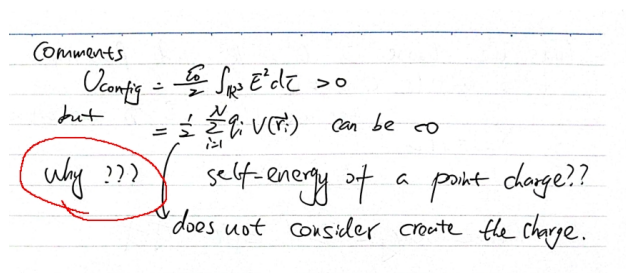 Comments
U_config = ε₀/2 ∫_ℝ³ E² dτ > 0
but = 1/2 Σ_{i=1}^{N} q_i V(r⃗_i) can be <0
why ??? self-energy of a point charge??
does not consider create the charge.